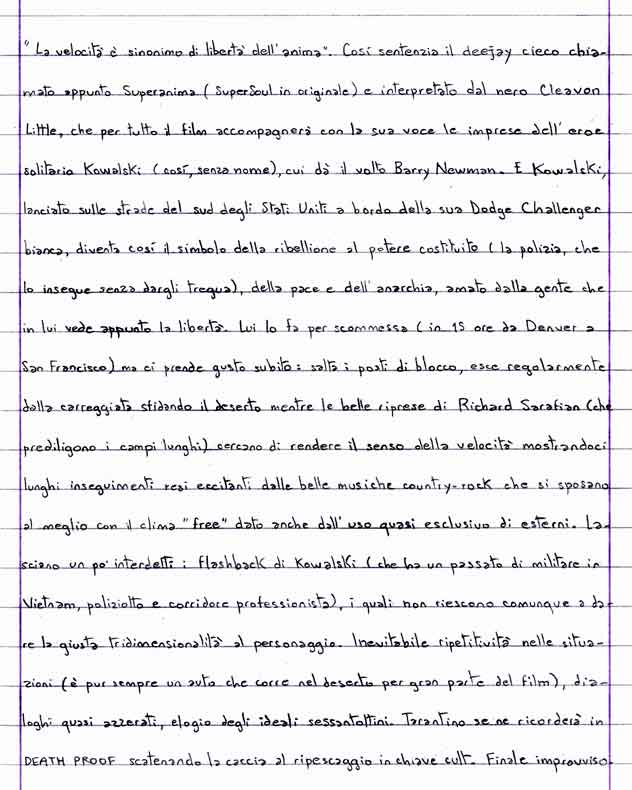 "La velocità è sinonimo di libertà dell'anima". Così sentenzia il deejay cieco chia-
mato appunto Superanima (SuperSoul in originale) e interpretato dal nero Cleavon
Little, che per tutto il film accompagnerà con la sua voce le imprese dell'eroe
solitario Kowalski (così, senza nome), cui dà il volto Barry Newman. E Kowalski,
lanciato sulle strade del sud degli Stati Uniti a bordo della sua Dodge Challenger
bianca, diventa così il simbolo della ribellione al potere costituito (la polizia, che
lo insegue senza dargli tregua), della pace e dell'anarchia, amato dalla gente che
in lui vede appunto la libertà. Lui lo fa per scommessa (in 15 ore da Denver a
San Francisco) ma ci prende gusto subito: salta i posti di blocco, esce regolarmente
dalla carreggiata sfidando il deserto mentre le belle riprese di Richard Sarafian (che
prediligono i campi lunghi) cercano di rendere il senso della velocità mostrandoci
lunghi inseguimenti resi eccitanti dalle belle musiche country-rock che si sposano
al meglio con il clima "free" dato anche dall'uso quasi esclusivo di esterni. La-
sciano un po' interdetti i flashback di Kowalski (che ha un passato di militare in
Vietnam, poliziotto e corridore professionista), i quali non riescono comunque a da-
re la giusta tridimensionalità al personaggio. Inevitabile ripetitività nelle situa-
zioni (è pur sempre un auto che corre nel deserto per gran parte del film), dia-
loghi quasi azzerati, elogio degli ideali sessantottini. Tarantino se ne ricorderà in
DEATH PROOF scatenando la caccia al ripescaggio in chiave cult. Finale improvviso.